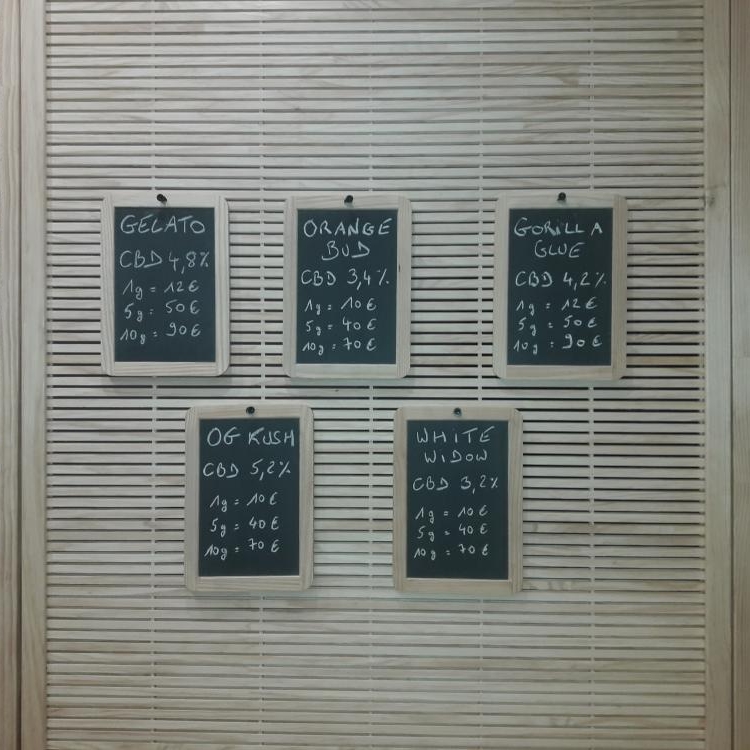 GELATO
CBD 4,8%
1g = 12€
5g = 50€
10g = 90€
ORANGE
BUD
CBD 3,4%
1g = 10€
5g = 40€
10g = 70€
GORILLA
GLUE
CBD 4,2%
1g = 12€
5g = 50€
10g = 90€
OG KUSH
CBD 5,2%
1g = 10€
5g = 40€
10g = 70€
WHITE
WIDOW
CBD 3,2%
1g = 10€
5g = 40€
10g = 70€